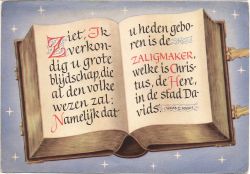 Ziet, Ik
verkon-
dig u grote
blijdschap, die
al den volke
wezen zal;
Namelijk dat
u heden gebo-
ren is de
ZALIGMAKER,
welke is Chris-
tus, de Here,
in de stad Da-
vids.